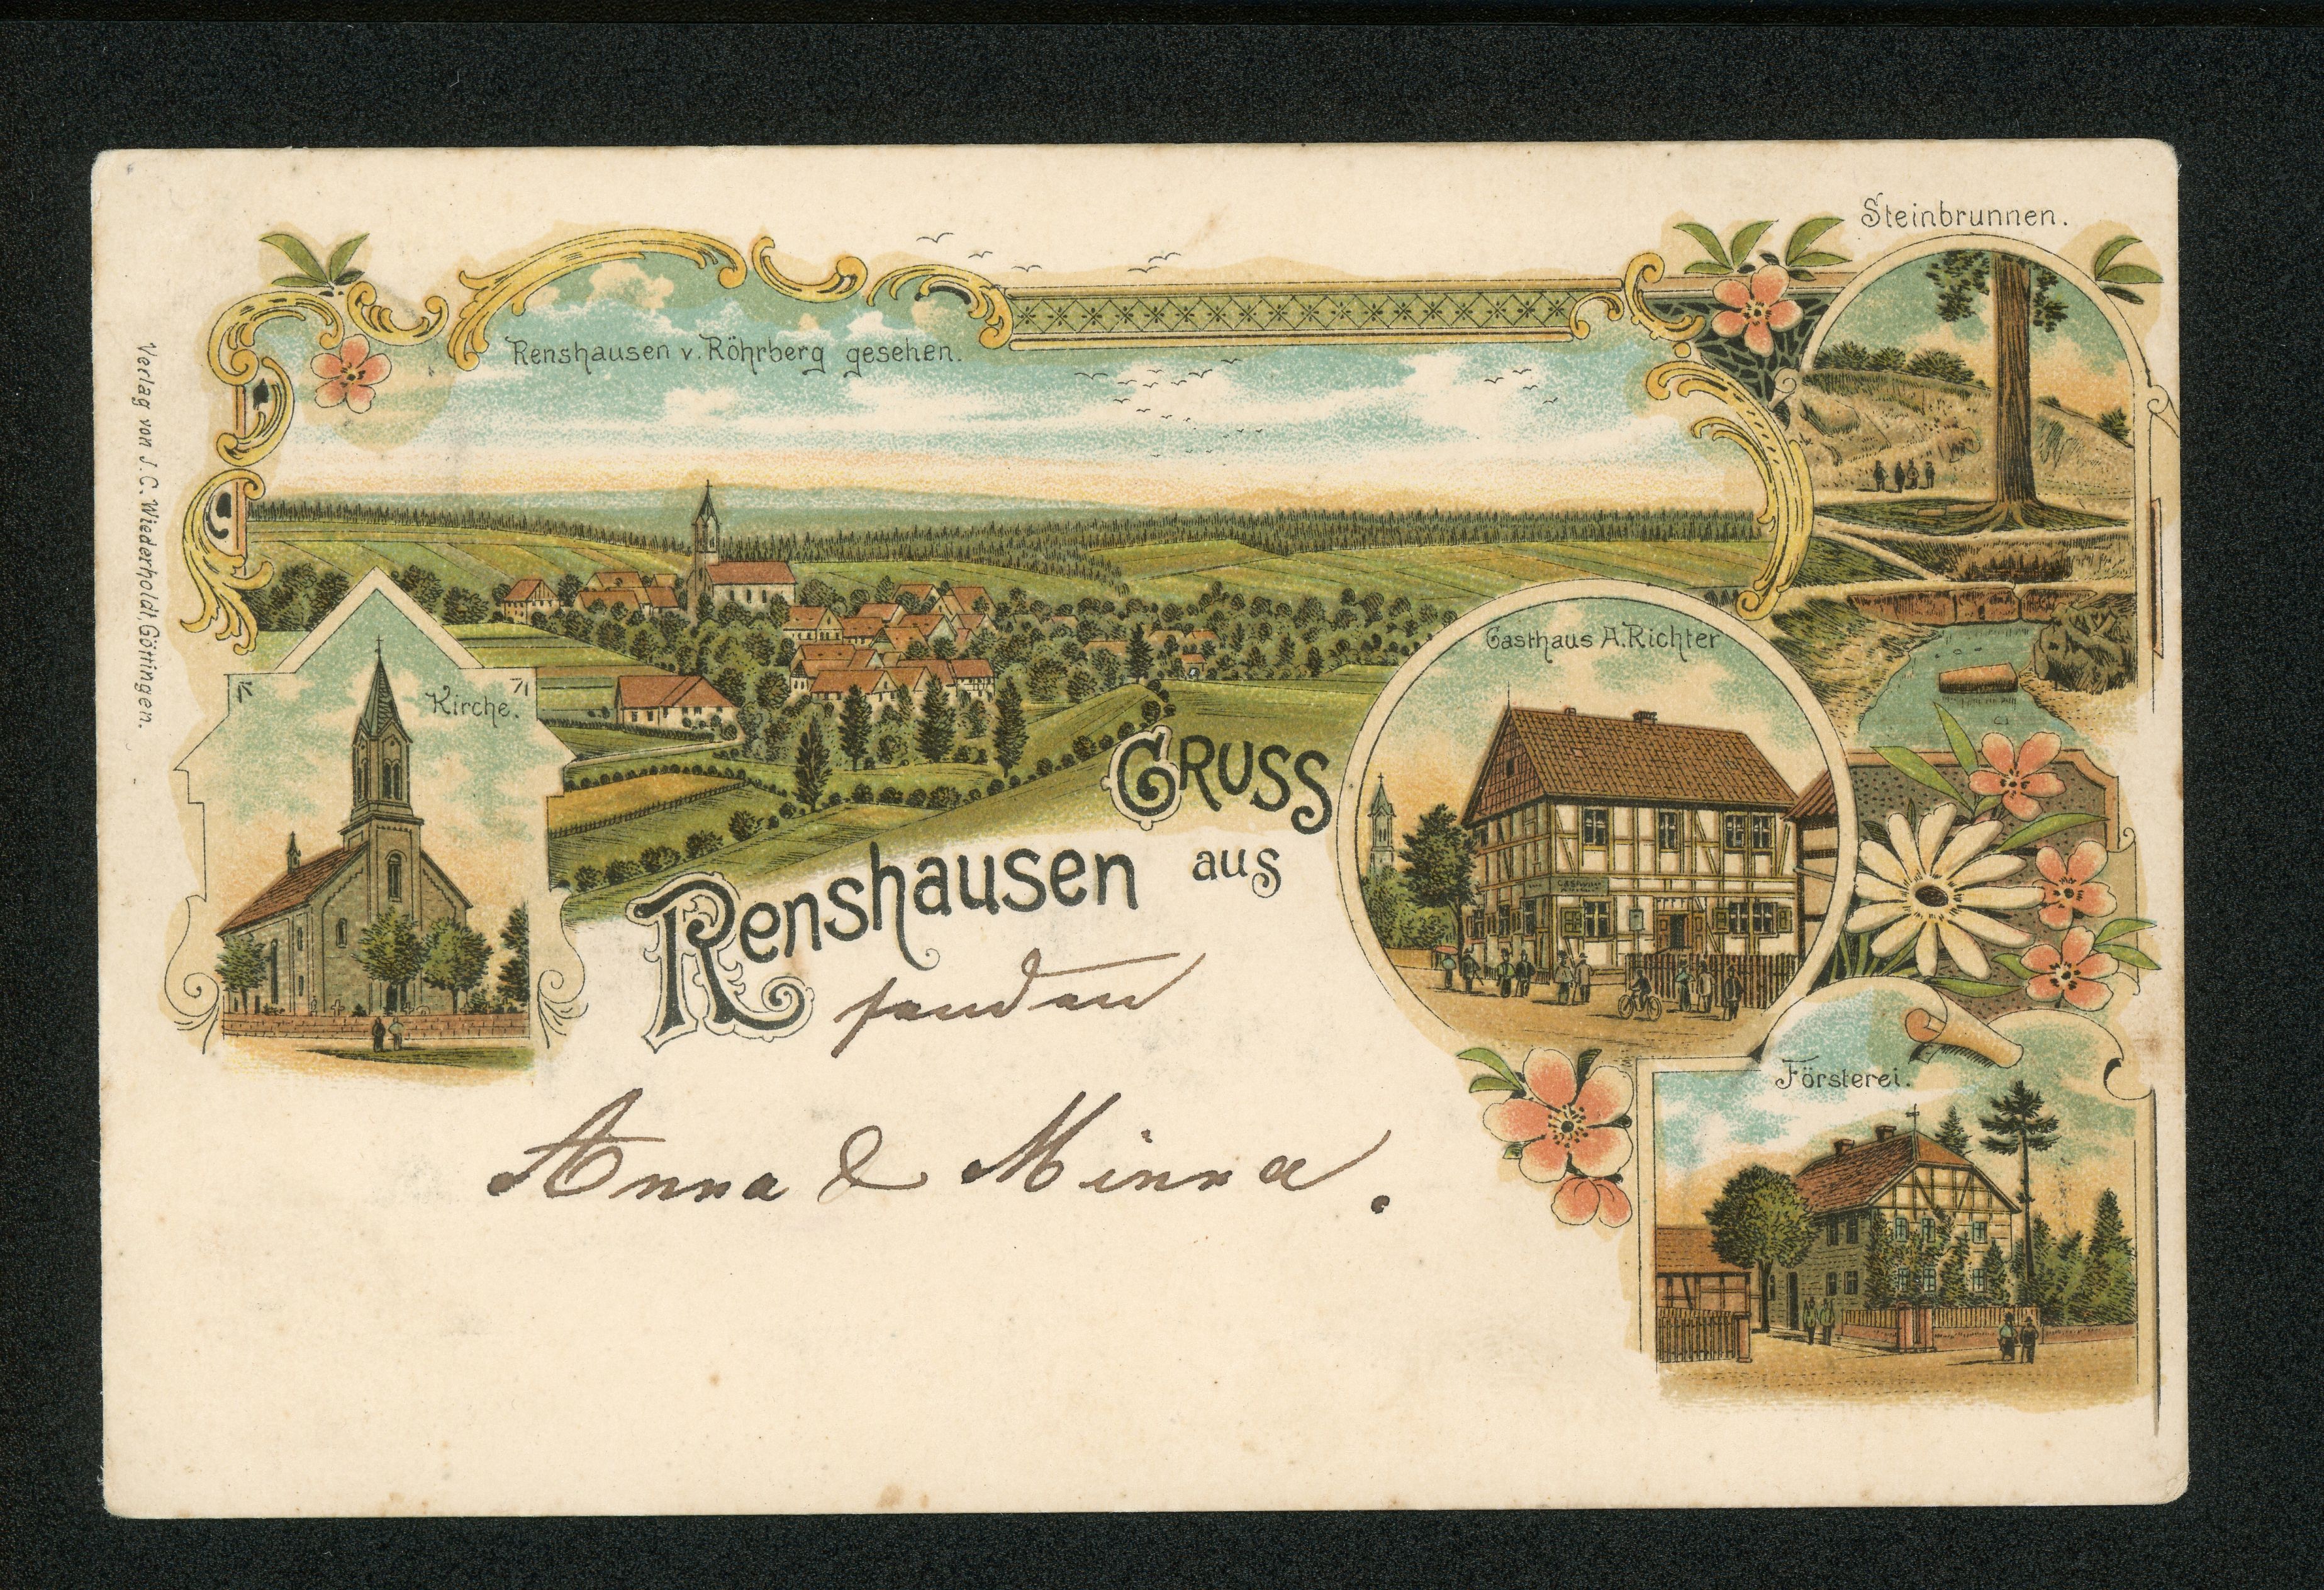 Steinbrunnen.
Renshausen v. Röhrberg gesehen.
Verlag von J. C. Wiederholdt, Göttingen.
Kirche.
Gasthaus A. Richter
GRUSS
aus
Renshausen
senden
Anna & Minna.
Försterei.